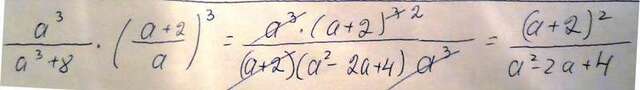 a³/(a³+8) · ((a+2)/a)³ = (a³·(a+2)^3 2)/((a+2)(a²-2a+4) a³) = (a+2)²/(a²-2a+4)